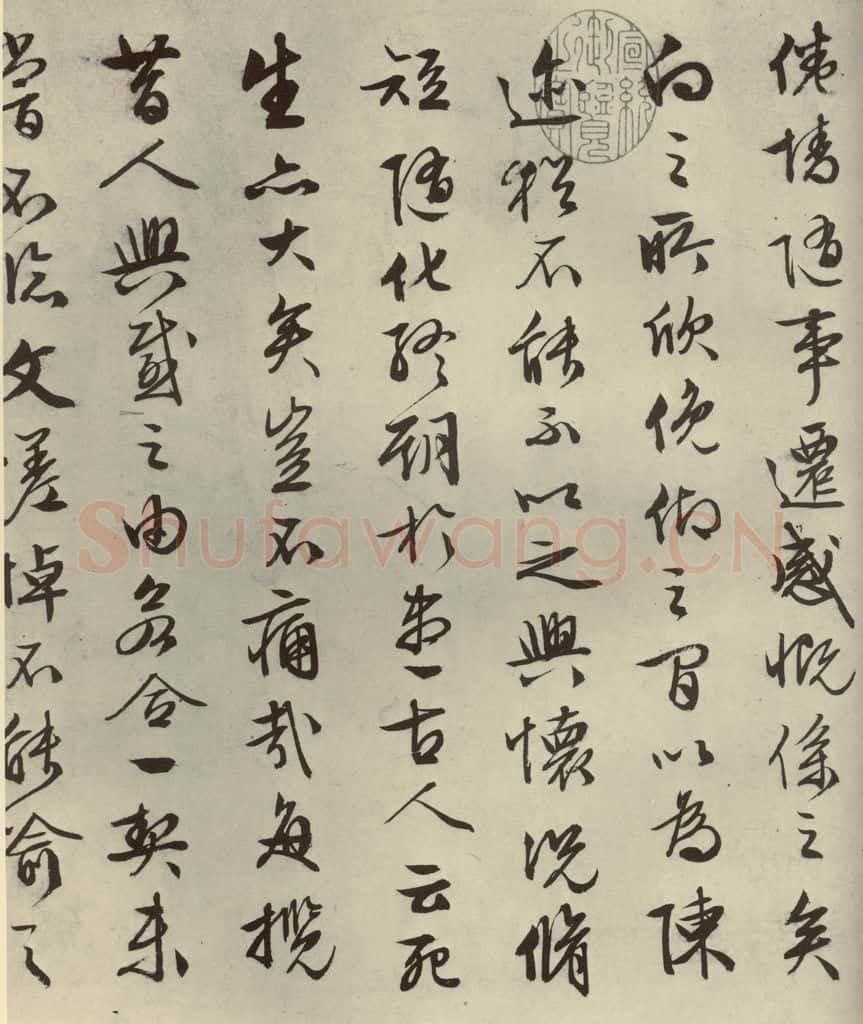 倦情隨事遷感慨係之矣
向之所欣俛仰之間以為陳
迹猶不能不以之興懷況脩
短隨化終期於盡古人云死
生亦大矣豈不痛哉每攬
昔人興感之由若合一契未
嘗不臨文嗟悼不能喻之
宣統御覽之寶
Shufawang.CN